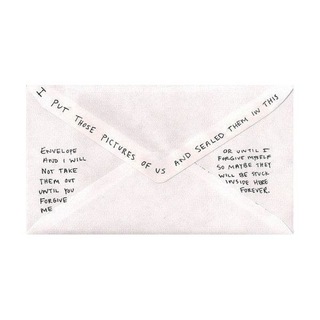 I PUT THOSE PICTURES OF US AND SEALED THEM IN THIS
ENVELOPE
AND I WILL
NOT TAKE
THEM OUT
UNTIL YOU
FORGIVE
ME
OR UNTIL I
FORGIVE MYSELF
SO MAYBE THEY
WILL BE STUCK
INSIDE HERE
FOREVER.